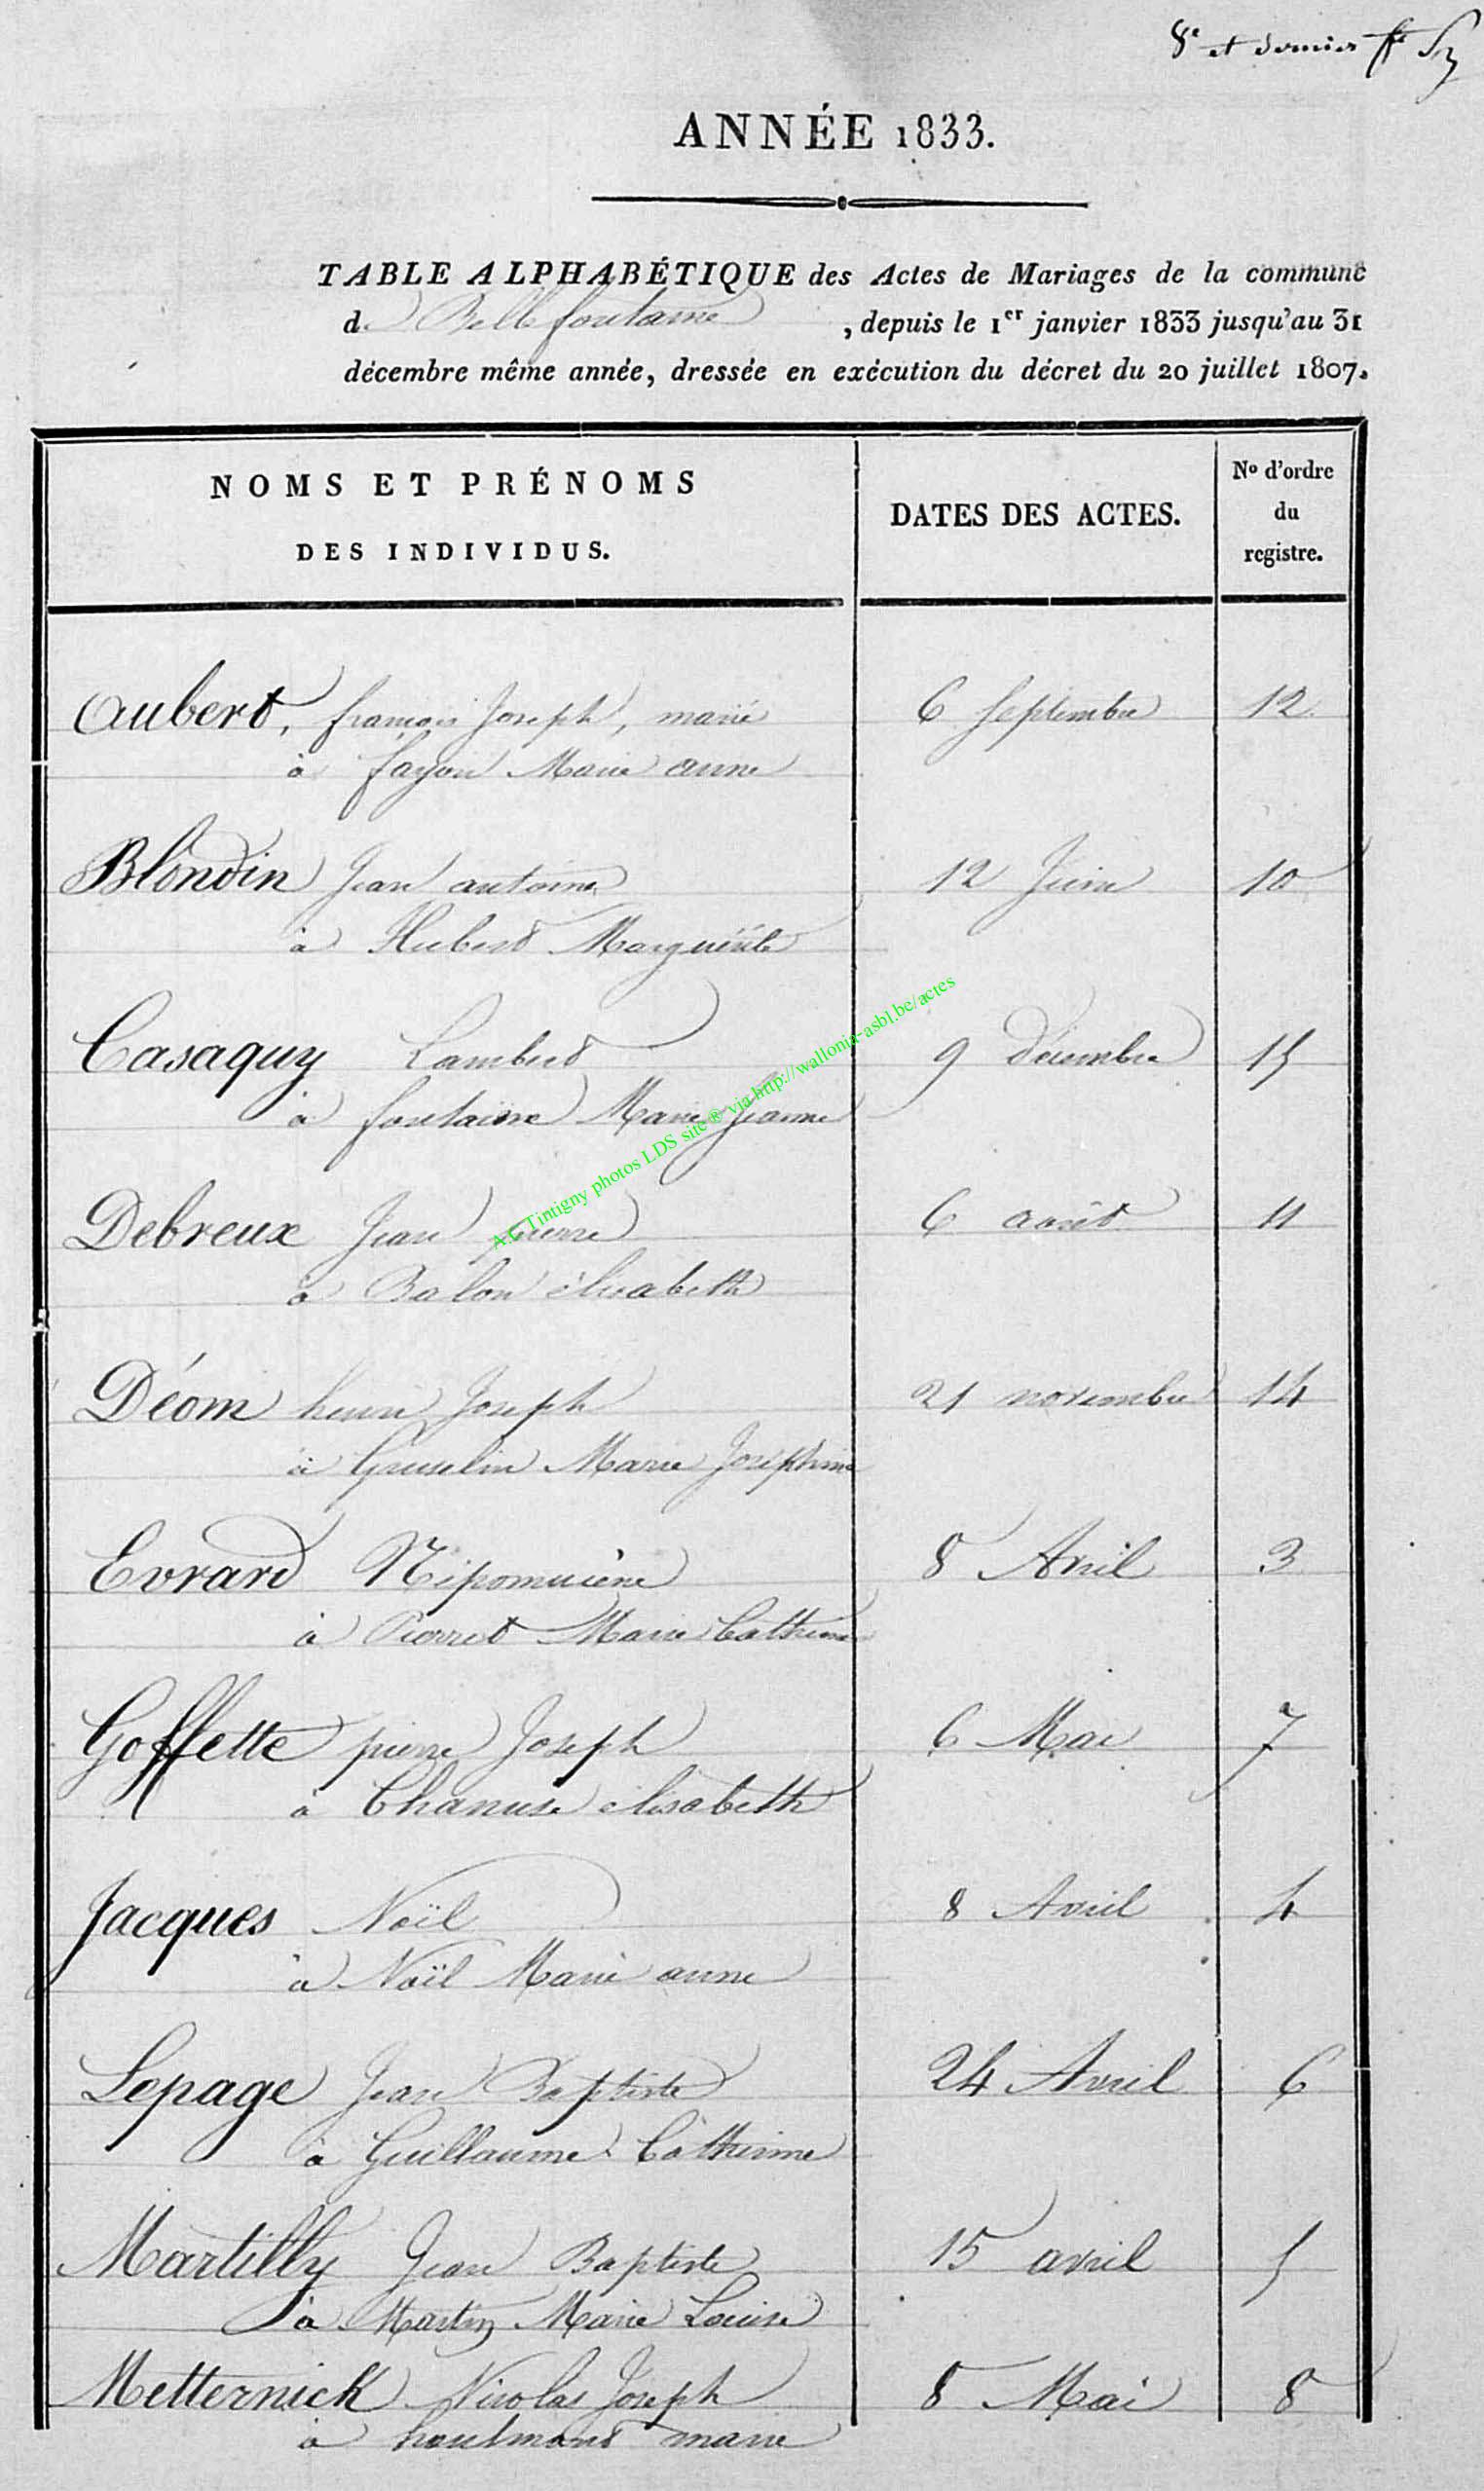 8e et dernier ffe
ANNÉE 1833.
TABLE ALPHABÉTIQUE des Actes de Mariages de la commune
d Bellefontaine, depuis le 1er janvier 1833 jusqu'au 31
décembre même année, dressée en exécution du décret du 20 juillet 1807.
NOMS ET PRÉNOMS
DES INDIVIDUS.
DATES DES ACTES.
No d'ordre
du
registre.
Aubert, françois Joseph, marié 6 Septembre 12
à fayon Marie anne
Blondin Jean antoine 12 Juin 10
à Hubert Marguérite
Casaquy Lambert 9 Décembre 15
à fontaine Marie Jeanne
A.C. Tintigny photos LDS site ® via http://wallonia-asbl.be/actes
Debreux Jean pierre 6 aoüt 11
à Balon élisabeth
Déom henri Joseph 21 novembre 14
à Marie Joséphine
Evrard Népomucène 8 Avril 3
à Pierret Marie Catherine
Goffette pierre Joseph 6 Mai 7
à élisabeth
Jacques Noël 8 Avril 4
à Noël Marie anne
Lepage Jean Baptiste 24 Avril 6
à Guillaume Catherine
Martilly Jean Baptiste 15 avril 5
à Martin Marie Louise
Metternick Nicolas Joseph 8 Mai 8
à houtmans marie